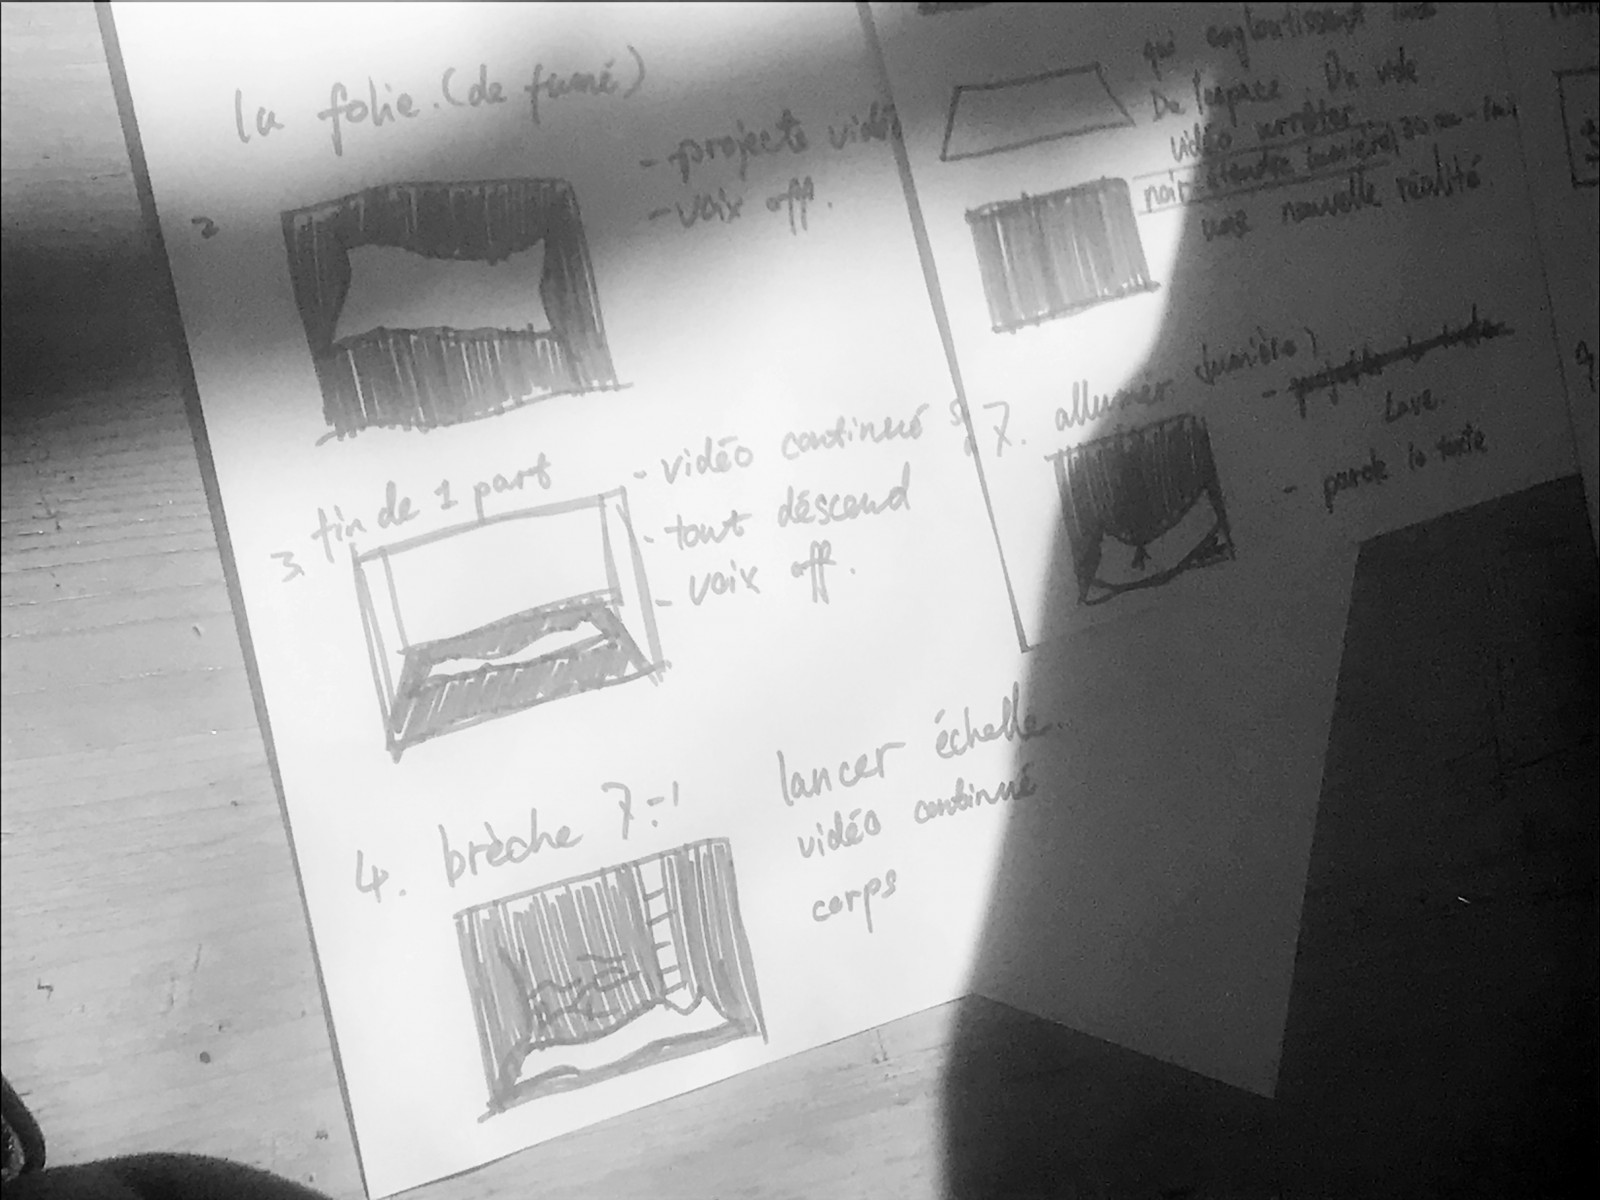 la folie. (de fumé)
2
- projecte vidéo
- voix off.
3. fin de 1 part
- vidéo continué
- tout déscend
- voix off.
4. brèche 7:1
lancer échelle.
vidéo continué
corps
qui engloutissent
De l'espace Du vide
vidéo arrêter.
noir étendre lumière
une nouvelle réalité
7. allumer (lumière)
Lave.
- parole la texte